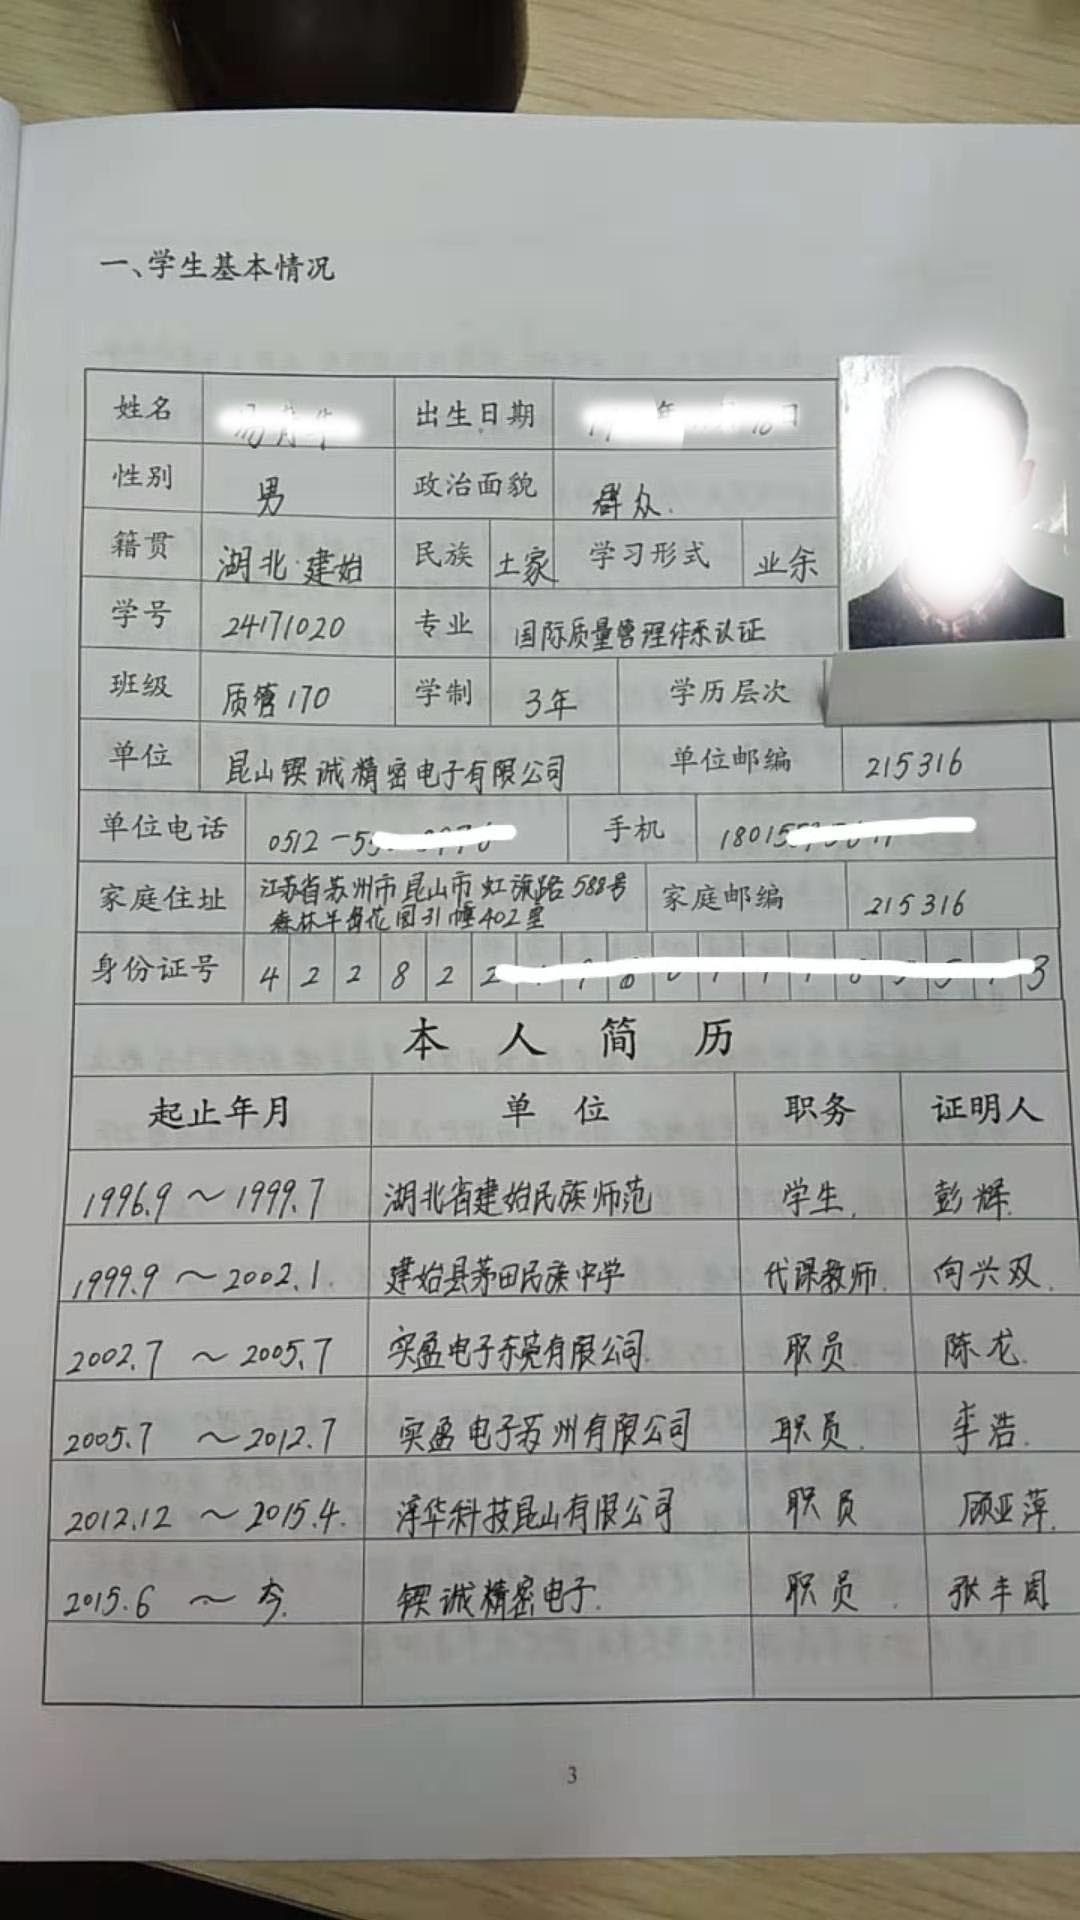 一、学生基本情况
姓名 出生日期
性别 男 政治面貌 群众.
籍贯 湖北·建始 民族 土家 学习形式 业余
学号 24171020 专业 国际质量管理体系认证
班级 质管170 学制 3年 学历层次
单位 昆山锲诚精密电子有限公司 单位邮编 215316
单位电话 0512- 手机 18015
家庭住址 江苏省苏州市昆山市虹旗路588号 家庭邮编 215316
森林半岛花园31幢402室
身份证号 4 2 2 8 2 2
本人简历
起止年月 单位 职务 证明人
1996.9～1999.7 湖北省建始民族师范 学生. 彭辉.
1999.9～2002.1. 建始县茅田民族中学 代课教师. 向兴双.
2002.7～2005.7 实盈电子东莞有限公司. 职员. 陈龙.
2005.7～2012.7 实盈电子苏州有限公司 职员. 李浩.
2012.12～2015.4. 淳华科技昆山有限公司 职员 顾亚萍.
2015.6～今. 锲诚精密电子. 职员. 张丰周
3